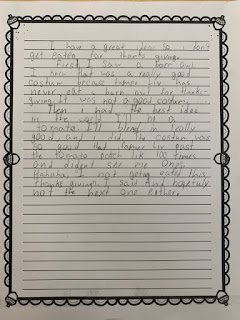 I have a great idea so I don't
get eaten for thanks giving.
First I saw a barn owl
I hear that was a really good
costum because farmer liv has
never eat a barn owl for thank-
giving. It was not a good costum.
Then I had the best idea
in the world I'll be a
tomato. I'll blend in really
good. and I did. The costum was
so good that farmer liv past
the tomato patch lik 100 times
and dident see me ones.
Hahaha, I not geting eated this
thanks giving I said And hopefuly
not the next one eather.